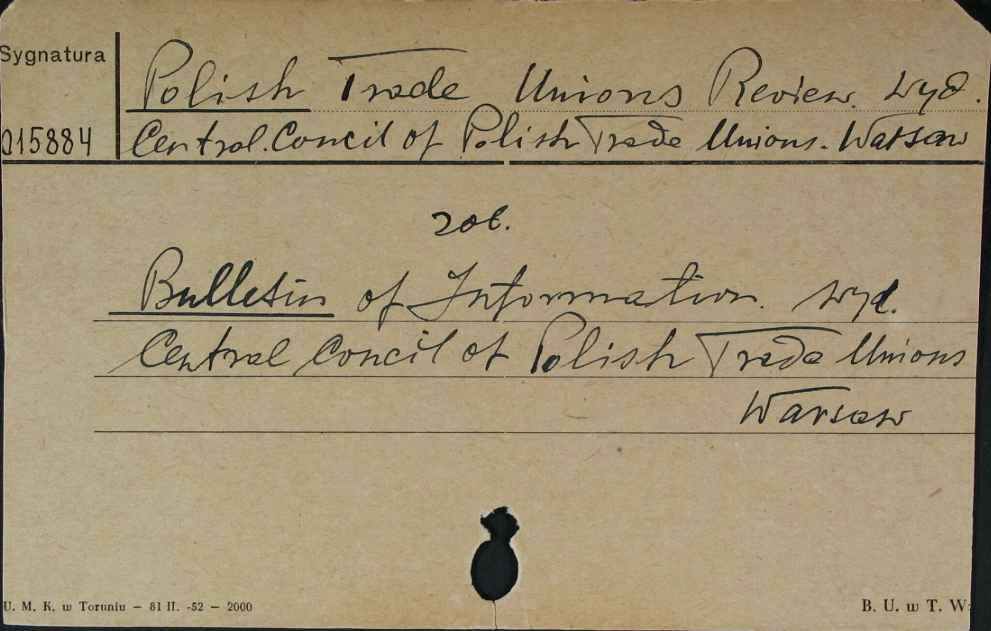 Sygnatura
Polish Trade Unions Review. Wyd.
015884
Central. Concil of Polish Trade Unions. Warsaw
zob.
Bulletin of Information. Wyd.
Central Concil of Polish Trade Unions
Warsaw
U. M. K. w Toruniu – 81 II. -52 – 2000
B. U. w T. W: